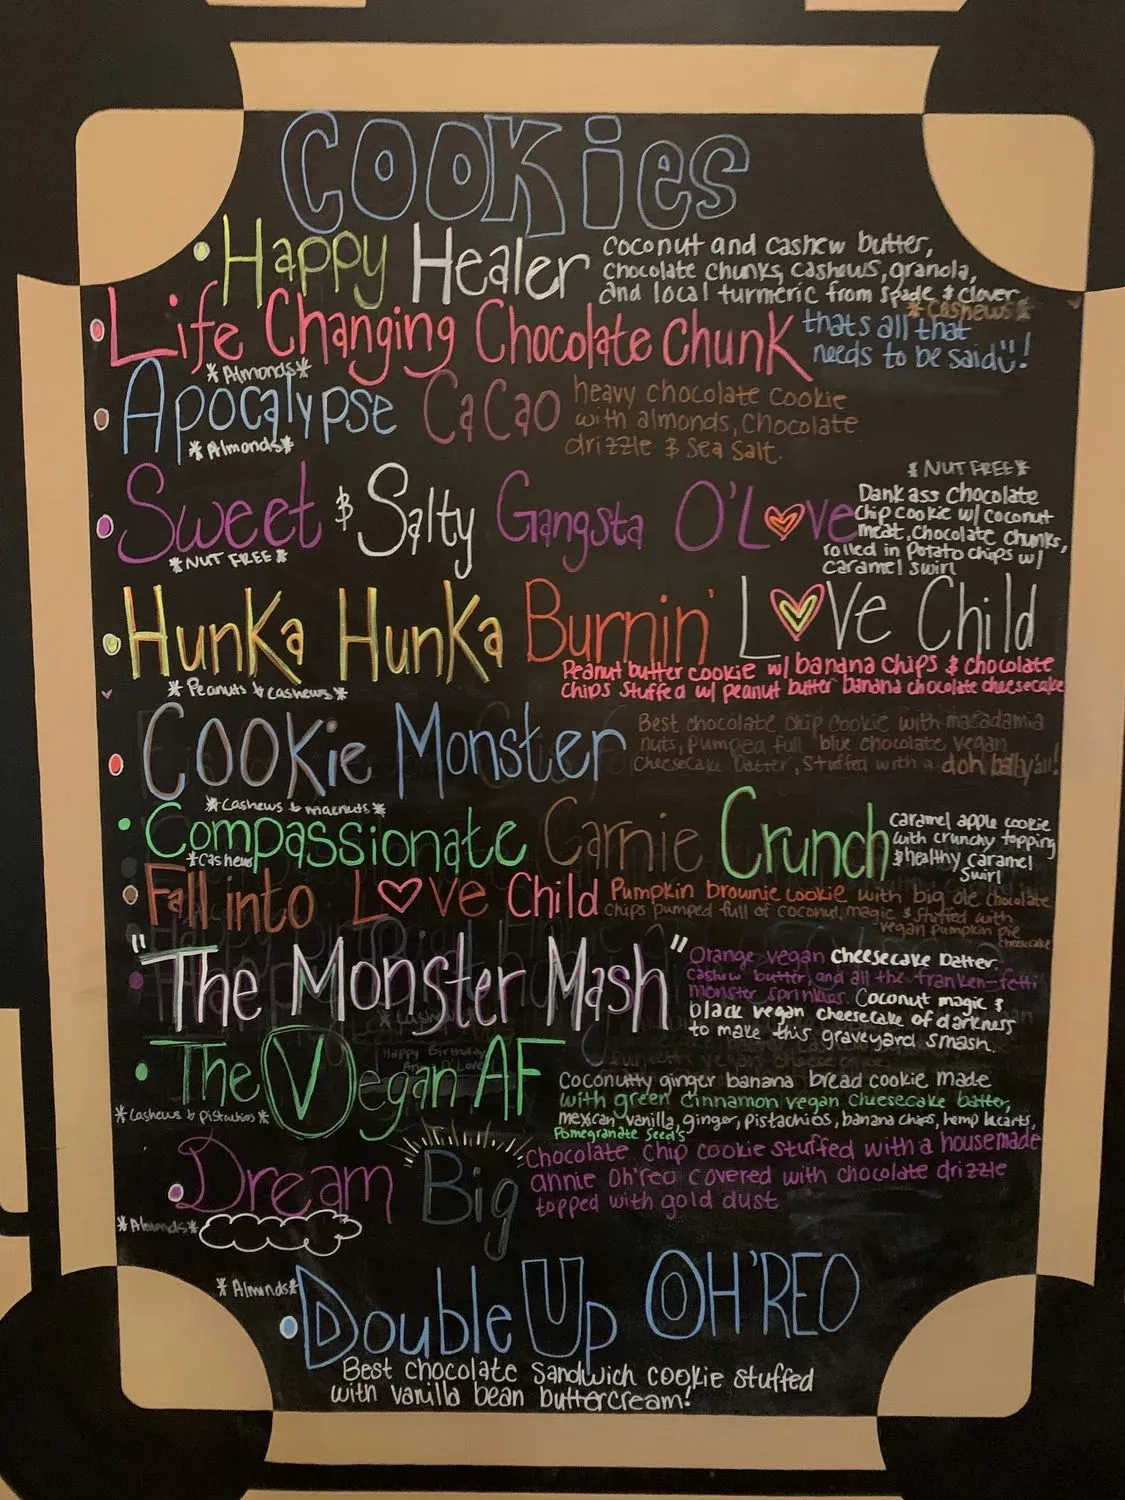 COOKies
Happy Healer
coconut and cashew butter,
chocolate chunks, cashews, granola,
and local turmeric from spade & clover
*Cashews*
Life Changing Chocolate Chunk
thats all that
needs to be said!
*Almonds*
Apocalypse CaCao
heavy chocolate cookie
with almonds, chocolate
drizzle & sea salt.
*Almonds*
*NUT FREE*
Sweet & Salty Gangsta O'Love
Dank ass chocolate
chip cookie w/ coconut
meat, chocolate chunks,
rolled in potato chips w/
caramel swirl
*NUT FREE*
Hunka Hunka Burnin' Love Child
Peanut butter cookie w/ banana chips & chocolate
chips stuffed w/ peanut butter banana chocolate cheesecake
*Peanuts & cashews*
Cookie Monster
Best chocolate chip cookie with macadamia
nuts, pumped full blue chocolate vegan
cheesecake batter, stuffed with a doh ball y'all!
*Cashews & macnuts*
Compassionate Carnie Crunch
caramel apple cookie
with crunchy topping
& healthy caramel
swirl
*Cashews
Fall into Love Child
Pumpkin brownie cookie with big ole chocolate
chips pumped full of coconut magic & stuffed with
vegan pumpkin pie
cheesecake
"The Monster Mash"
Orange vegan cheesecake batter
cashew butter, and all the franken-fetti
monster sprinkles. Coconut magic &
black vegan cheesecake of darkness
to make this graveyard smash.
The Vegan AF
Happy Birthday
Coconutty ginger banana bread cookie made
with green cinnamon vegan cheesecake batter,
mexican vanilla, ginger, pistachios, banana chips, hemp hearts,
Pomegranate seeds
*Cashews & Pistachios*
Dream Big
Chocolate chip cookie stuffed with a housemade
annie Oh'reo covered with chocolate drizzle
topped with gold dust
*Almonds*
*Almonds*
Double Up OH'REO
Best chocolate sandwich cookie stuffed
with vanilla bean buttercream!